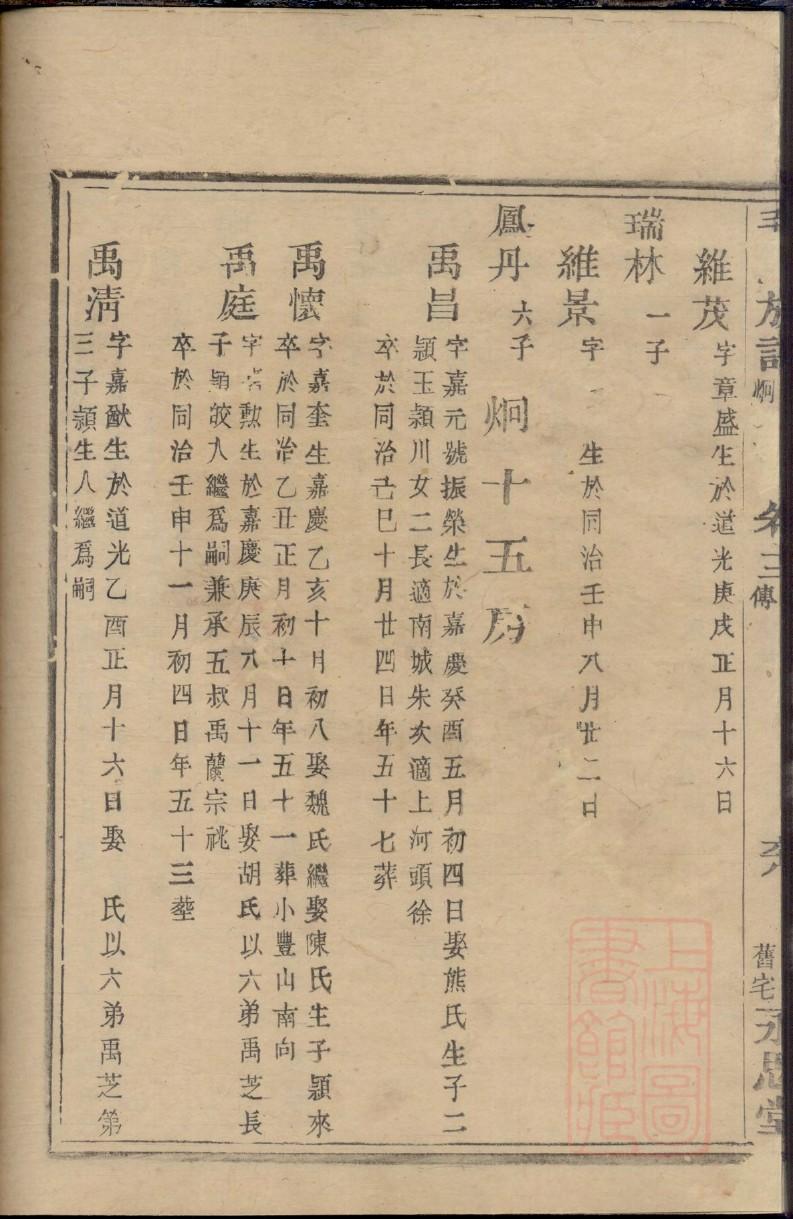 族譜 炯 卷三 傳 舊宅 永思堂
維茂 字章盛生於道光庚戌正月十六日
瑞林 一子
維景 字 生於同治壬申八月廿二日
鳳丹 六子 炯十五房
禹昌 字嘉元號振榮生於嘉慶癸酉五月初四日娶熊氏生子二
穎玉穎川女二長適南城朱次適上河頭徐
卒於同治己巳十月廿四日年五十七葬
禹懷 字嘉奎生嘉慶乙亥十月初八娶魏氏繼娶陳氏生子穎來
卒於同治乙丑正月初十日年五十一葬小豐山南向
禹庭 字嘉勲生於嘉慶庚辰八月十一日娶胡氏以六弟禹芝長
子穎皎入繼爲嗣兼承五叔禹蘭宗祧
卒於同治壬申十一月初四日年五十三塟
禹清 字嘉猷生於道光乙酉正月十六日娶 氏以六弟禹芝第
三子穎生入繼爲嗣
上海圖書館藏